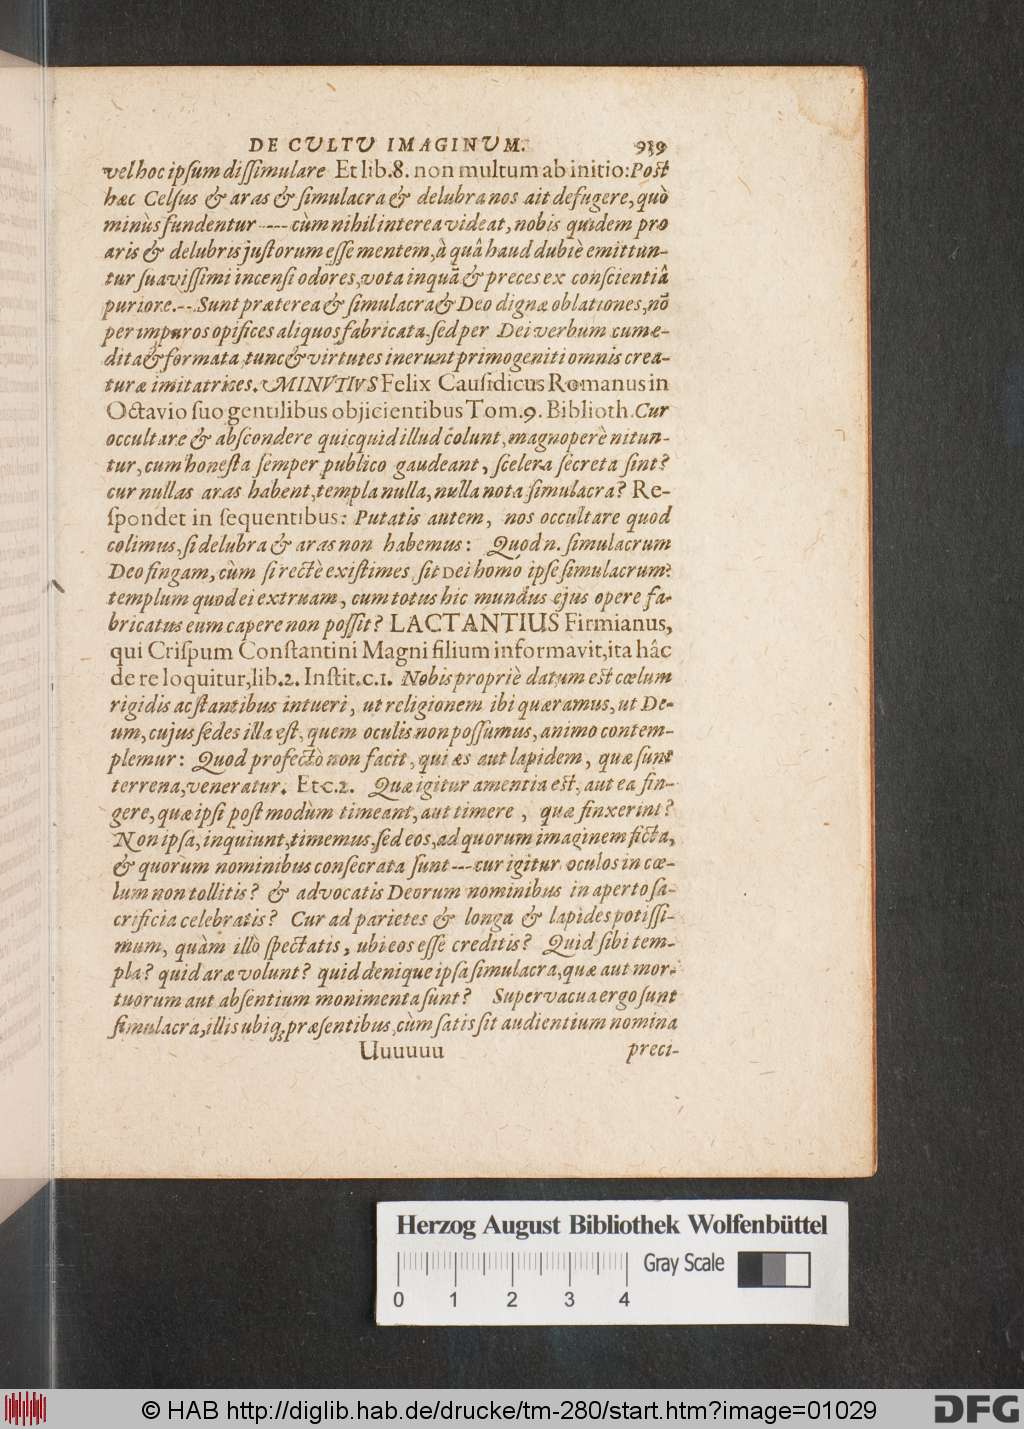 DE CULTU IMAGINUM. 939
vel hoc ipſum diſſimulare Et lib. 8. non multum ab initio: Poſt
hæc Celſus & aras & ſimulacra & delubra nos ait defugere, quò
minùs fundentur ---- cùm nihil interea videat, nobis quidem pro
aris & delubris juſtorum eſſe mentem, à quâ haud dubiè emittun-
tur ſuaviſſimi incenſi odores, vota inquã & preces ex conſcientiâ
puriore. -- Sunt præterea & ſimulacra & Deo dignæ oblationes, nõ
per impuros opifices aliquos fabricata, ſed per Dei verbum cum e-
dita & formata, tunc & virtutes inerunt primogeniti omnis crea-
turæ imitatrices. MINVTIVS Felix Cauſidicus Romanus in
Octavio ſuo gentilibus objicientibus Tom. 9. Biblioth. Cur
occultare & abſcondere quicquid illud colunt, magnoperè nitun-
tur, cum honeſta ſemper publico gaudeant, ſcelera ſecreta ſint?
cur nullas aras habent, templa nulla, nulla nota ſimulacra? Re-
ſpondet in ſequentibus: Putatis autem, nos occultare quod
colimus, ſi delubra & aras non habemus: Quod n. ſimulacrum
Deo fingam, cùm ſi rectè exiſtimes ſit Dei homo ipſe ſimulacrum?
templum quod ei extruam, cum totus hic mundus ejus opere fa-
bricatus eum capere non poſſit? LACTANTIUS Firmianus,
qui Criſpum Conſtantini Magni filium informavit, ita hâc
de re loquitur, lib. 2. Inſtit. c. 1. Nobis propriè datum eſt cœlum
rigidis ac ſtantibus intueri, ut religionem ibi quæramus, ut De-
um, cujus ſedes illa eſt, quem oculis non poſſumus, animo contem-
plemur: Quod profectò non facit, qui æs aut lapidem, quæ ſunt
terrena, veneratur. Et c. 2. Quæ igitur amentia eſt, aut ea fin-
gere, quæ ipſi poſt modùm timeant, aut timere, quæ finxerint?
Non ipſa, inquiunt, timemus, ſed eos, ad quorum imaginem ficta,
& quorum nominibus conſecrata ſunt --- cur igitur oculos in cœ-
lum non tollitis? & advocatis Deorum nominibus in aperto ſa-
crificia celebratis? Cur ad parietes & longa & lapides potiſſi-
mum, quàm illò ſpectatis, ubi eos eſſe creditis? Quid ſibi tem-
pla? quid aræ volunt? quid denique ipſa ſimulacra, quæ aut mor-
tuorum aut abſentium monimenta ſunt? Supervacua ergo ſunt
ſimulacra, illis ubiq; præſentibus, cùm ſatis ſit audientium nomina
Uuuuuu preci-
Herzog August Bibliothek Wolfenbüttel
Gray Scale
0 1 2 3 4
© HAB http://diglib.hab.de/drucke/tm-280/start.htm?image=01029
DFG